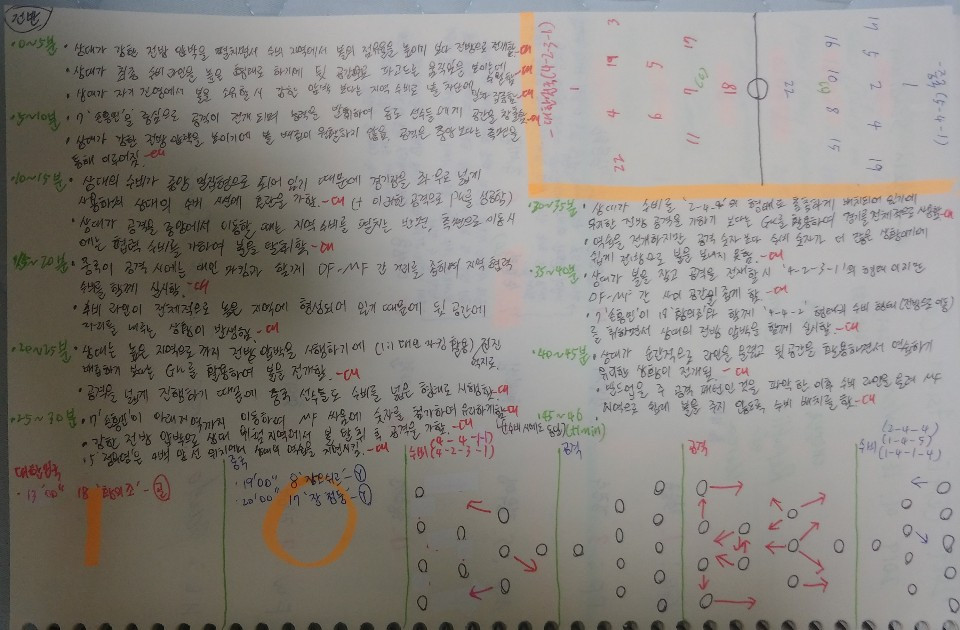 전반
0~5분 · 상대가 강한 전방 압박을 펼치면서 수비 지역에서 볼의 점유율을 높이기 보다 전방으로 전개함.
· 상대가 최종 수비 라인을 높은 형태로 하기에 뒷 공간으로 파고드는 움직임을
· 상대가 자기 진영에서 볼을 소유할 시 강한 압박 보다는 지역 수비로 볼 차단에
5~10분 · 7 '손흥민'을 중심으로 공격이 전개 되며 능력을 발휘하여 동료 선수들에게 공간을 창출함
· 상대가 강한 전방 압박을 높이기에 볼 배급이 원활하지 않음. 공격은 중앙 보다는 측면을
통해 이루어짐.
10~15분 · 상대의 수비가 중앙 밀집현으로 되어 있기 때문에 경기장을 좌·우로 넓게
사용하며 상대의 수비 시 혼란을 가함. (+ 이러한 공격으로 PK를 성공함)
· 상대가 공격을 중앙에서 이동할 때는 지역 수비를 펼치는 반면, 측면으로 이동시
에는 협력 수비를 가하여 볼을 탈취함
15~20분 · 중국이 공격 시에는 대인 마킹과 함께 DF-MF 간 거리를 좁히며 지역 협력
수비를 함께 실시함.
· 수비 라인이 전체적으로 높은 지역에 형성되어 있기 때문에 뒷 공간에
자리를 내주는 상황이 발생함
20~25분 · 상대는 높은 지역으로 까지 전방 압박을 시행하기에 (1:1 대인 마킹 활용)
대응하기 보다는 GK를 활용하여 볼을 전개함.
· 공격을 넓게 진행하기 때문에 중국 선수들도 수비를 넓은 형태로 시행함
25~30분 · 7 '손흥민'이 아래 지역까지 이동하여 MF 싸움에 숫자를 증가하여 유리하게함
· 강한 전방 압박으로 상대 위험 지역에서 볼 탈취 후 공격을 가함.
· 5 '정우영'은 4백 앞 선 위치에서 상대의 역습을 지연시킴.
- 대한민국 (4-2-3-1)
1
22 4 19 3
6 5
11 7 17
(C)
18
22
15 8 10 16
(C)
19 4 2 5 17
1
- 중국 (5-4-1)
30~35분 · 상대가 수비를 '2-4-4'의 형태로 촘촘하게 배치되어 있기에
무리한 전방 공격을 가하기 보다는 GK를 활용하여 경기를 전체적으로 사용함
· 역습을 전개하지만 공격 숫자 보다 수비 숫자가 더 많은 상황이기에
쉽게 전방으로 볼을 보내지 못함.
35~40분 · 상대가 볼을 잡고 공격을 전개할 시 '4-2-3-1'의 형태 이지만
DF-MF 간 사이 공간을 좁게 함
· 7 '손흥민'이 18 '황의조'와 함께 '4-4-2' 형태의 수비 형태
를 취하면서 상대의 전방 압박을 함께 실시함
40~45분 · 상대가 순간적으로 라인을 올렸고 뒷 공간을 활용하면서 역습하기
유리한 상황이 전개됨
· 빌드업을 주 공격 패턴인 것을 파악한 이후 수비 라인을 올려 MF
지역으로 쉽게 볼을 주지 않도록 수비 배치를 함
45~46 (+1min)
대한민국
· 13'00" 18 '황의조' - 골
중국
· 19'00" 8 - Y
· 20'00" 17 '장 정동' - Y
수비 (4-4-1-1)
(4-2-3-1)
공격
공격
수비 (2-4-4)
(1-4-5)
(1-4-1-4)